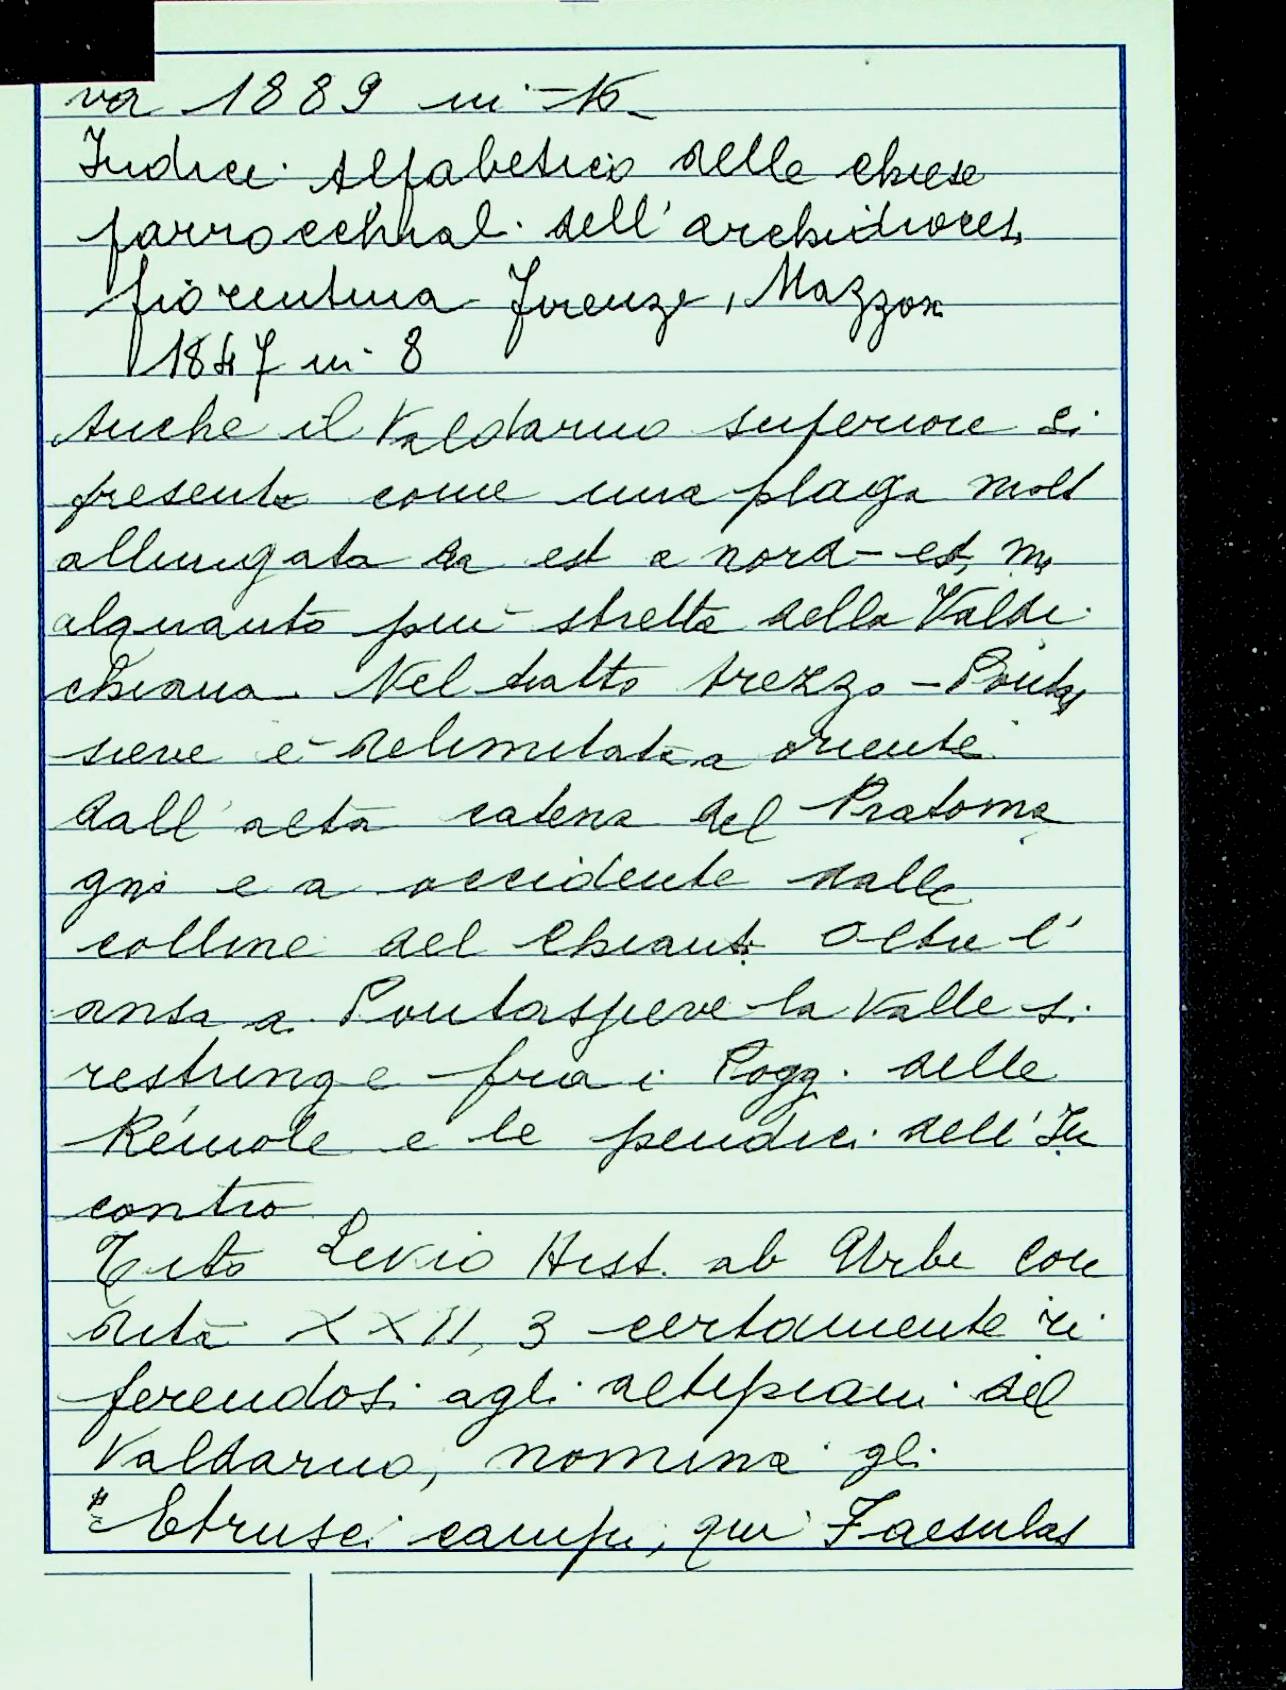 va 1889 in-16
Indici Alfabetico delle chiese
parrocchial. dell'archidioces.
fiorentina Firenze, Mazzoni
1847 in 8
Anche il Valdarno superiore si
presenta come una plaga molt
allungata da est a nord-est, ma
alquanto più stretta della Valdi
chiana. Nel tratto Arezzo-Pontas
sieve è delimitata a oriente
dall'alta catena del Pratoma
gno e a occidente dalle
colline del Chianti Oltre l'
ansa a Pontassieve la valle si
restringe fra i Pogg. delle
Remole e le pendici dell'In
contro
Tito Livio Hist. ab Urbe Con
dita XXII, 3 certamente ri
ferendosi agli altipiani del
Valdarno, nomina gli
"Etrusci campi, qui Faesulas